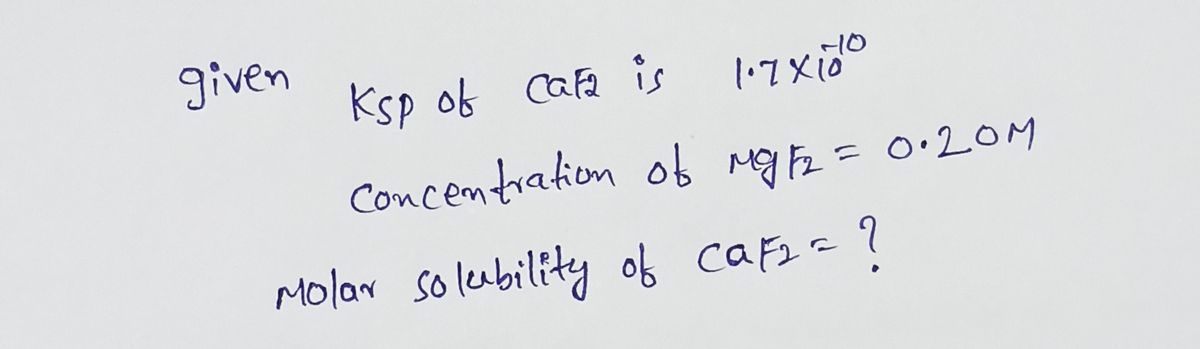 given
Ksp of CaF2 is 1.7×10^-10
Concentration of MgF2 = 0.20M
Molar solubility of CaF2 = ?